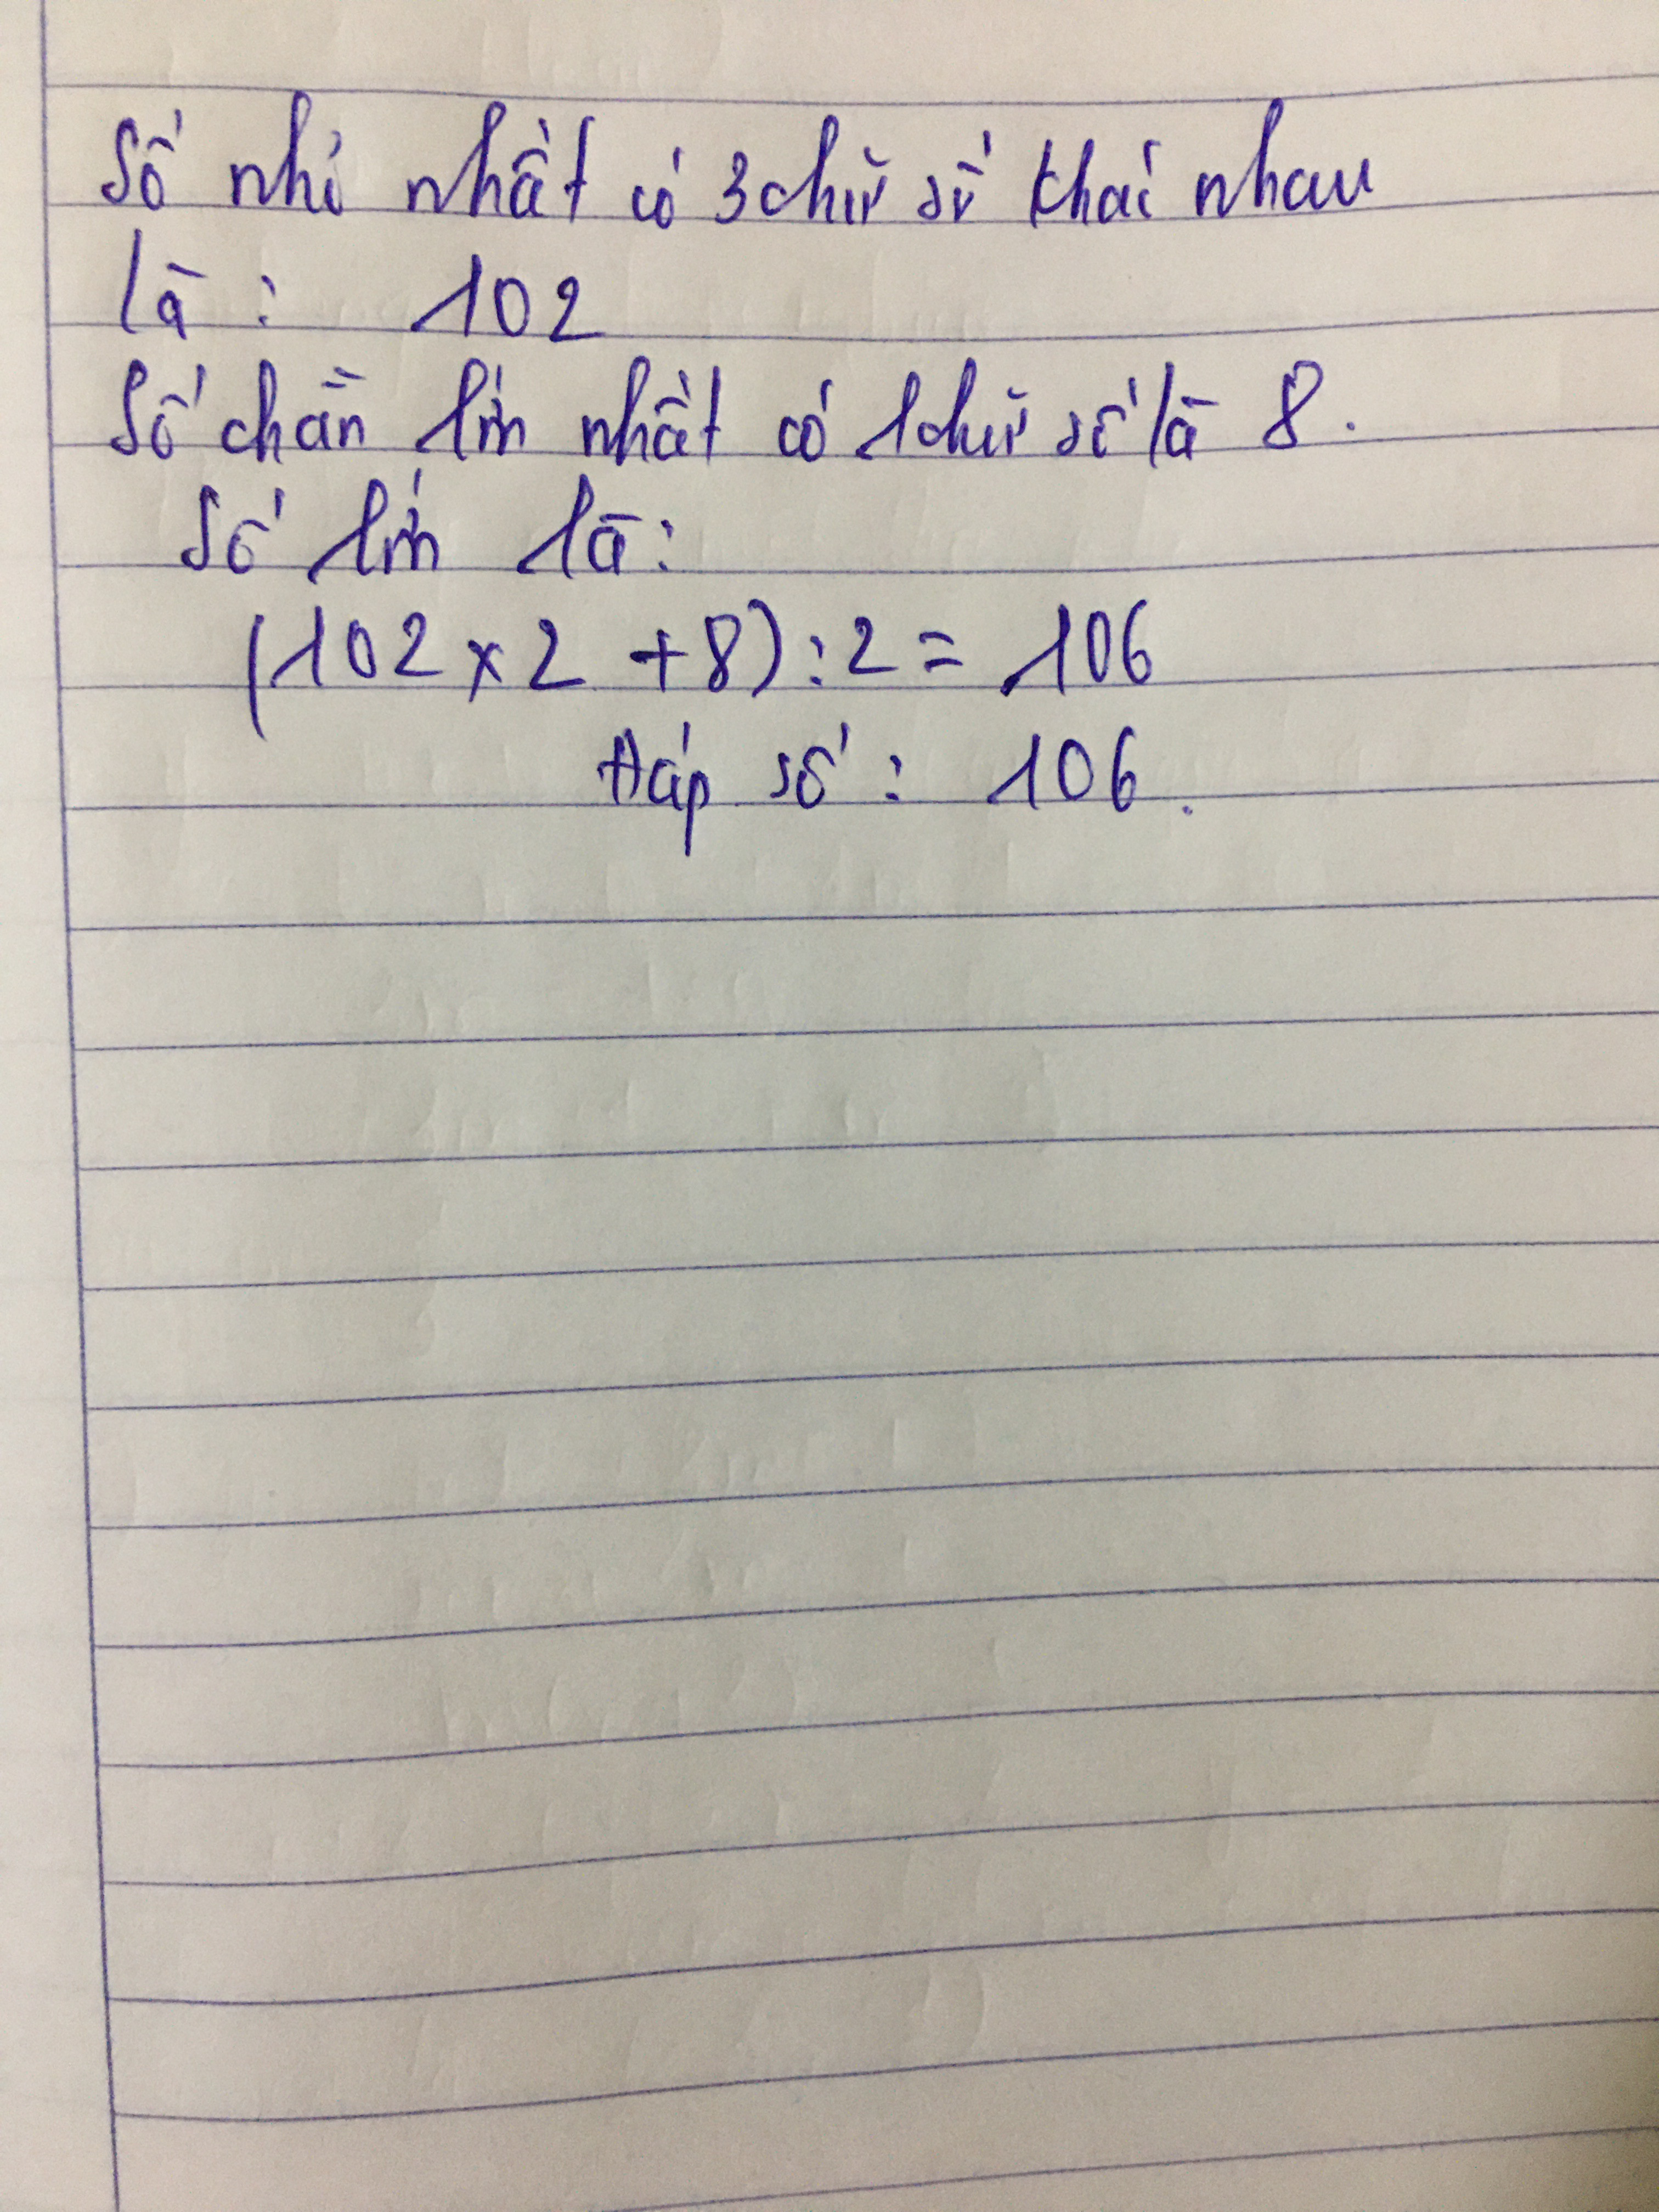 Số nhỏ nhất có 3 chữ số khác nhau
là : 102
Số chẵn lớn nhất có 1 chữ số là 8.
Số lớn là:
(102 x 2 + 8) : 2 = 106
Đáp số : 106.